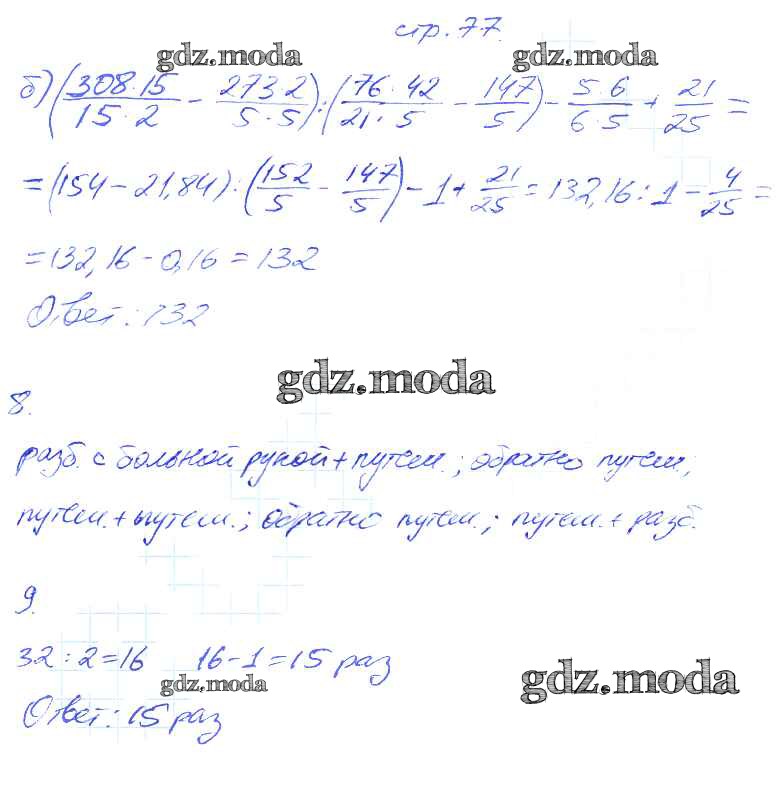 стр. 77.
gdz.moda gdz.moda
б) (308·15/15·2 − 273·2/5·5) : (76·42/21·5 − 147/5) − 5·6/6·5 + 21/25 =
= (154 − 21,84) : (152/5 − 147/5) − 1 + 21/25 = 132,16 : 1 − 4/25 =
= 132,16 − 0,16 = 132
Ответ: 132
gdz.moda
8.
разб. с больной рукой + путем.; обратно путем;
путем. + путем.; обратно путем.; путем. + разб.
9.
32 : 2 = 16 16 − 1 = 15 раз
gdz.moda gdz.moda
Ответ: 15 раз